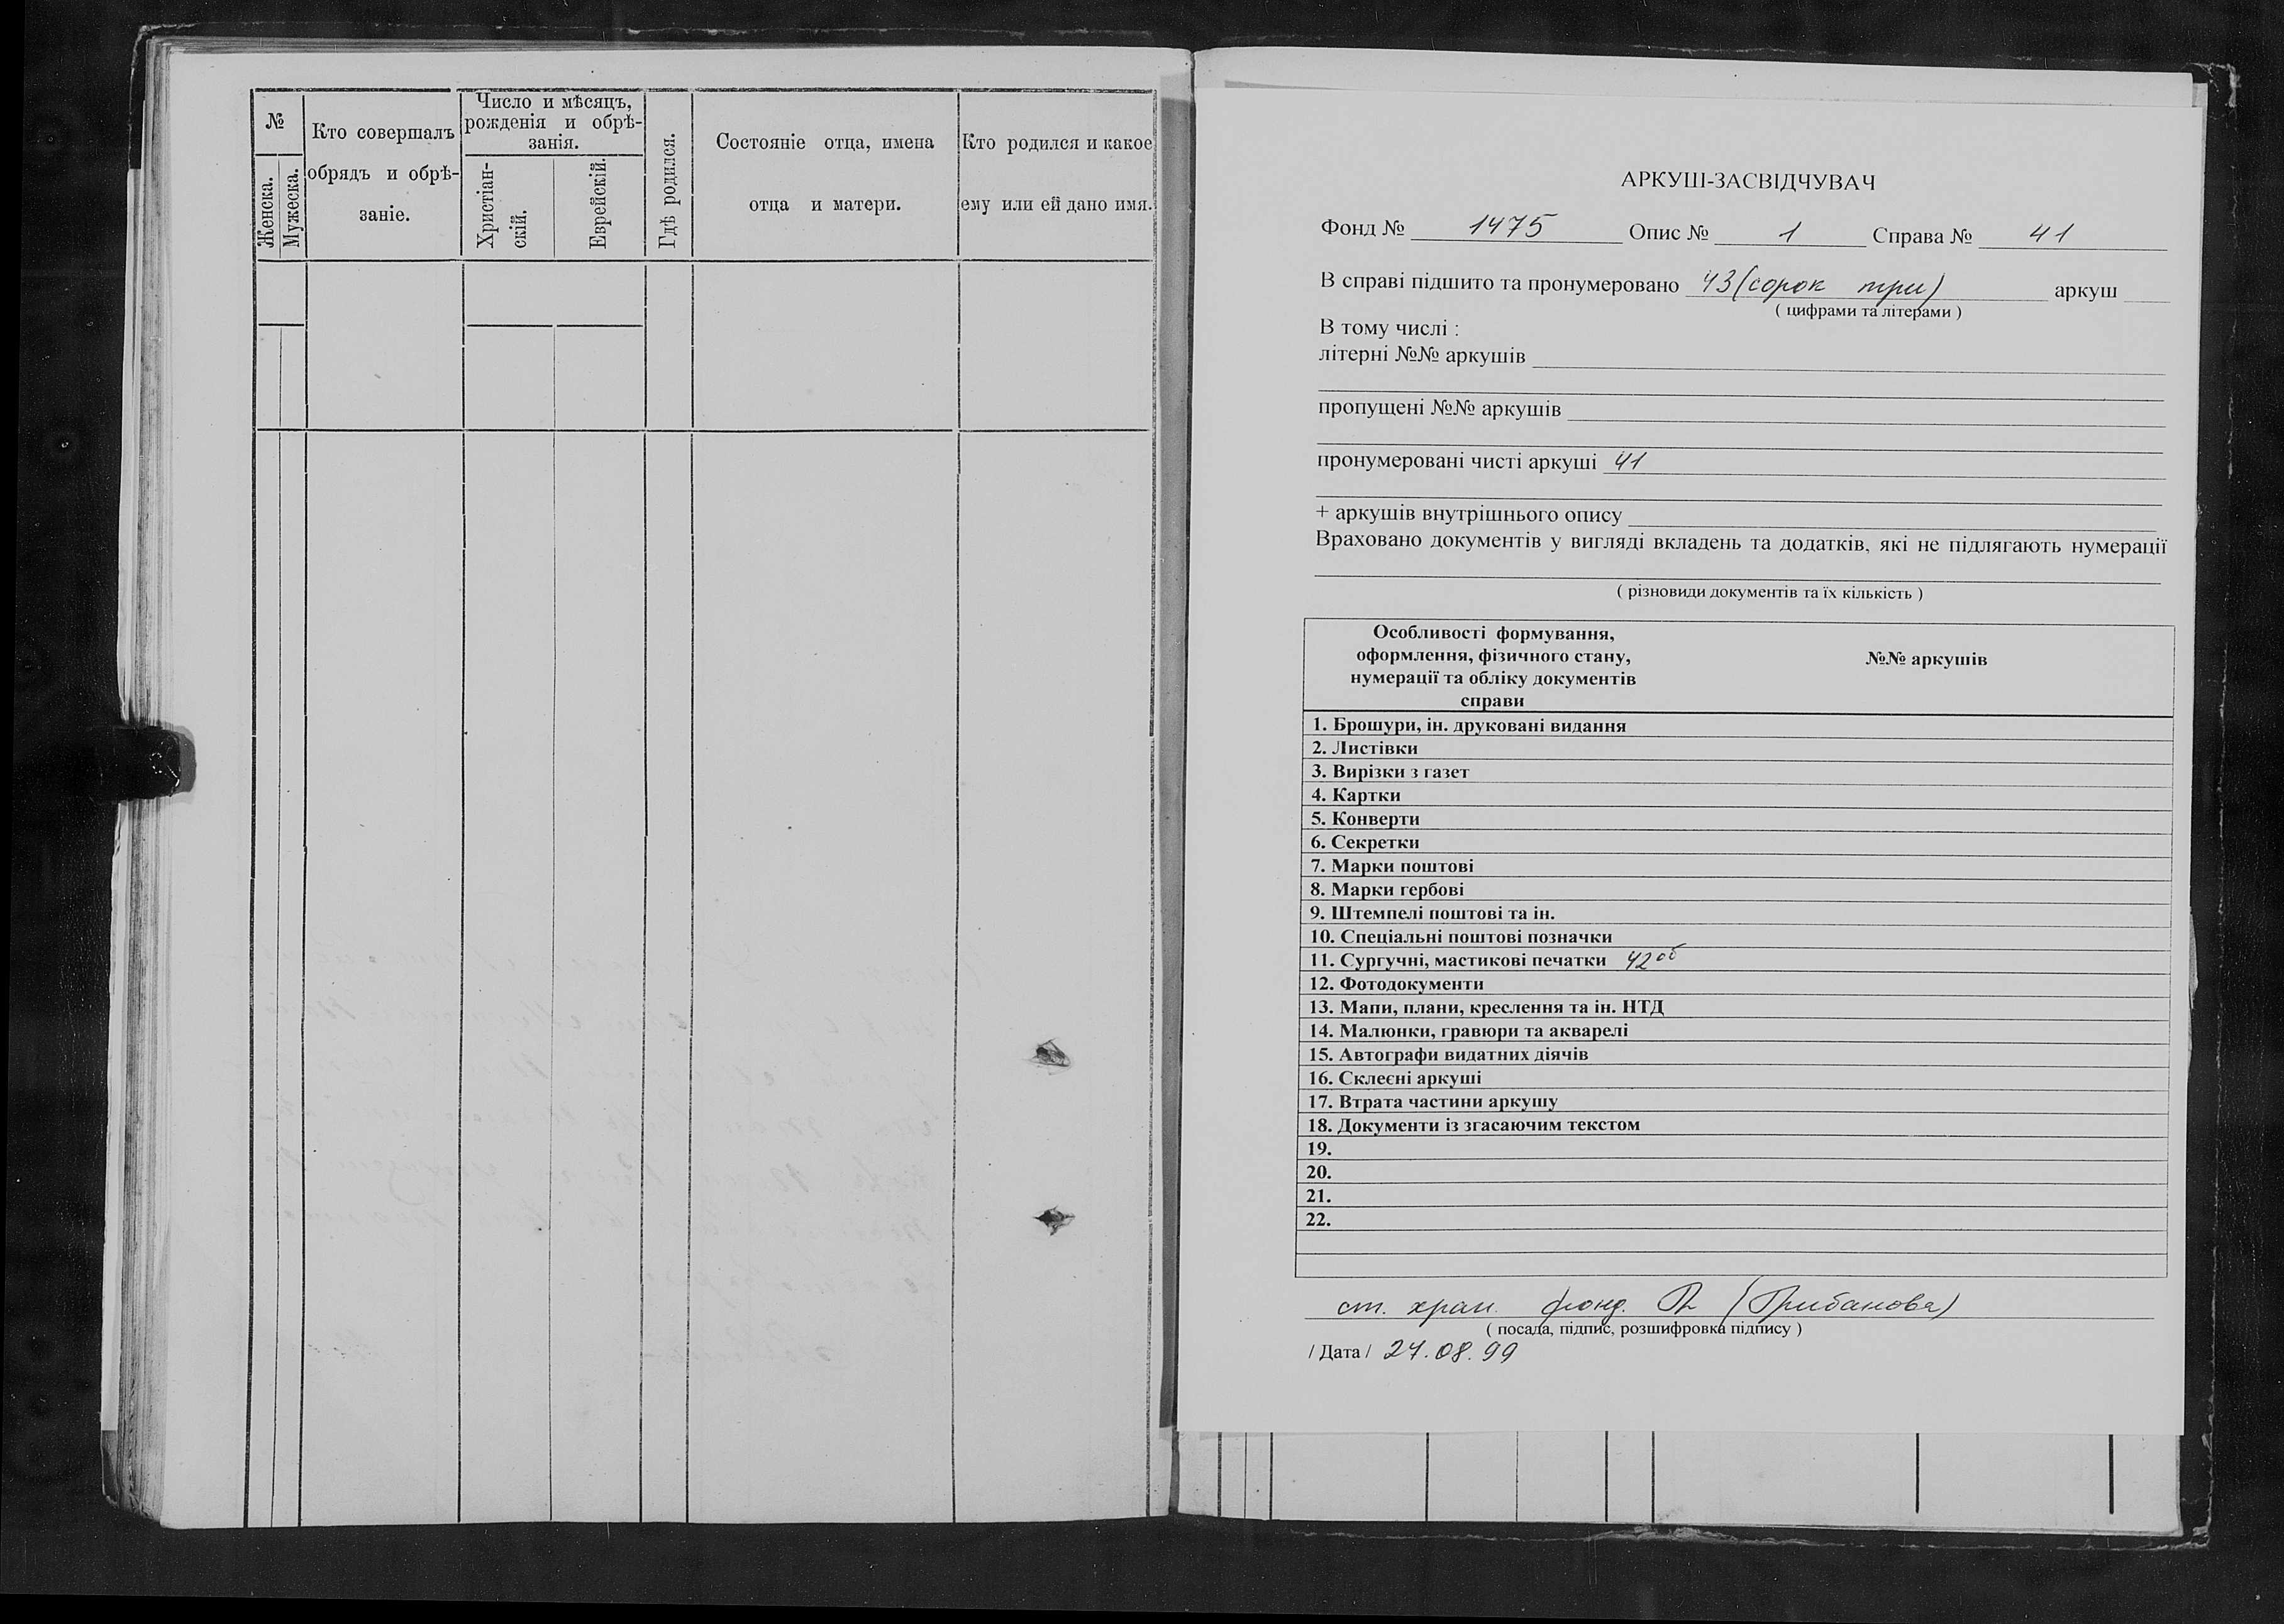 №
Женска.
Мужеска.
Кто совершалъ
обрядъ и обрѣ-
заніе.
Число и мѣсяцъ,
рожденія и обрѣ-
занія.
Христіан-
скій.
Еврейскій.
Гдѣ родился.
Состояніе отца, имена
отца и матери.
Кто родился и какое
ему или ей дано имя.
АРКУШ-ЗАСВІДЧУВАЧ
Фонд № 1475 Опис № 1 Справа № 41
В справі підшито та пронумеровано 43 (сорок три) аркуш
( цифрами та літерами )
В тому числі :
літерні №№ аркушів
пропущені №№ аркушів
пронумеровані чисті аркуші 41
+ аркушів внутрішнього опису
Враховано документів у вигляді вкладень та додатків, які не підлягають нумерації
( різновиди документів та їх кількість )
Особливості формування,
оформлення, фізичного стану,
нумерації та обліку документів
справи
№№ аркушів
1. Брошури, ін. друковані видання
2. Листівки
3. Вирізки з газет
4. Картки
5. Конверти
6. Секретки
7. Марки поштові
8. Марки гербові
9. Штемпелі поштові та ін.
10. Спеціальні поштові позначки
11. Сургучні, мастикові печатки 42об
12. Фотодокументи
13. Мапи, плани, креслення та ін. НТД
14. Малюнки, гравюри та акварелі
15. Автографи видатних діячів
16. Склеєні аркуші
17. Втрата частини аркушу
18. Документи із згасаючим текстом
19.
20.
21.
22.
ст. хран. фонд. (Грибанова)
( посада, підпис, розшифровка підпису )
/ Дата / 27.08.99